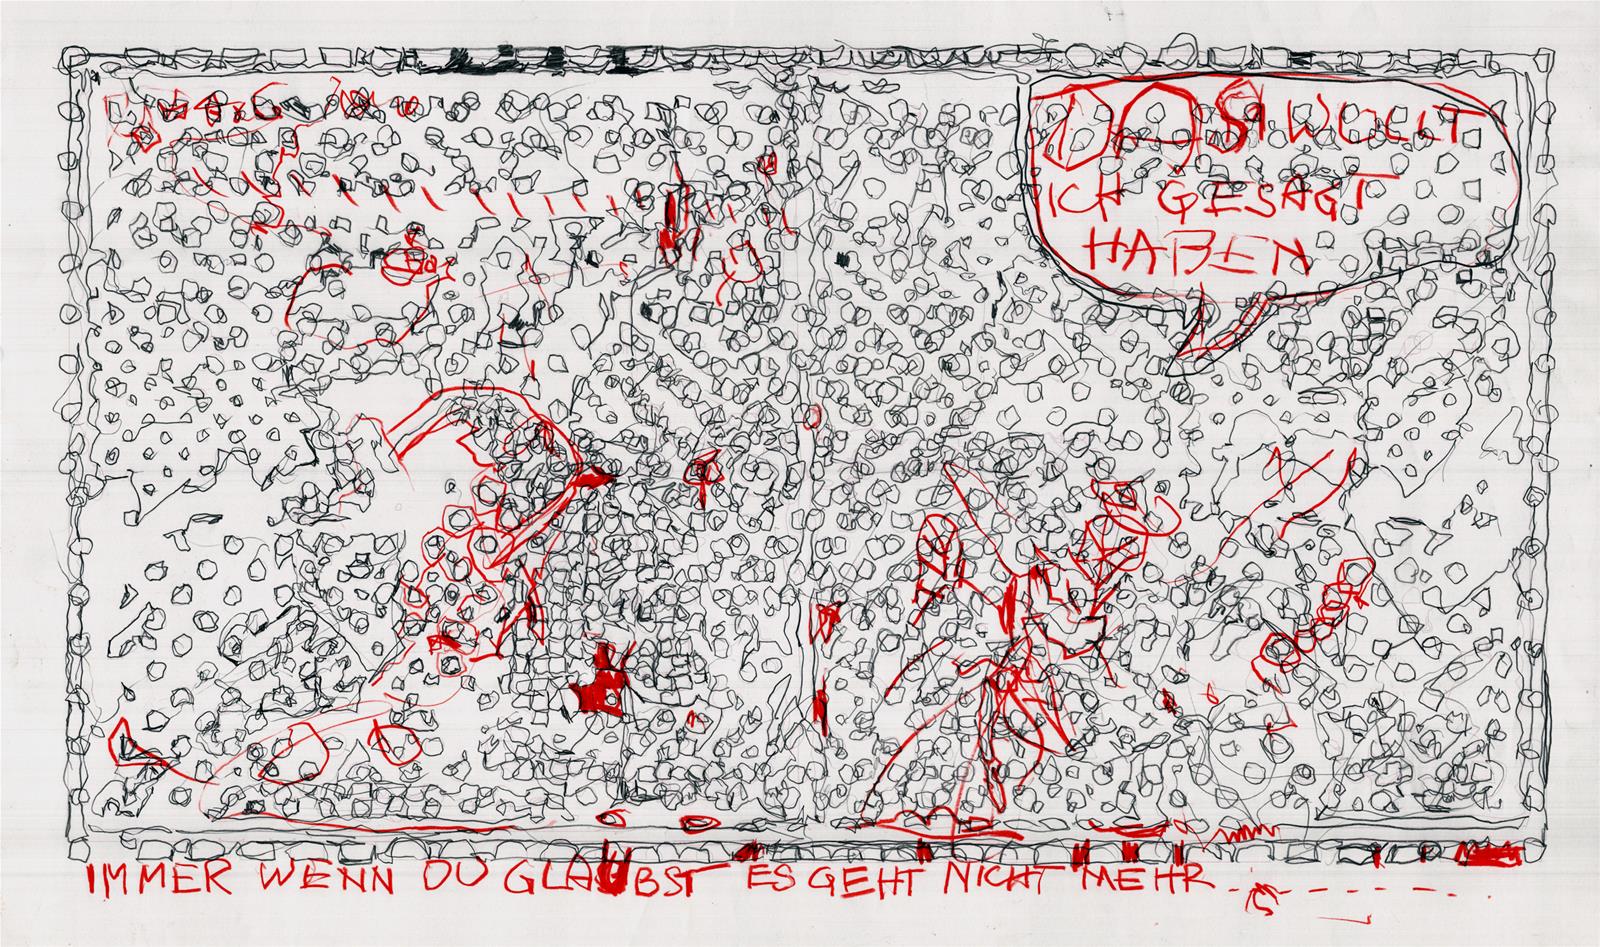 DAS WOLLT
ICH GESAGT
HABEN
IMMER WENN DU GLAUBST ES GEHT NICHT MEHR...------.